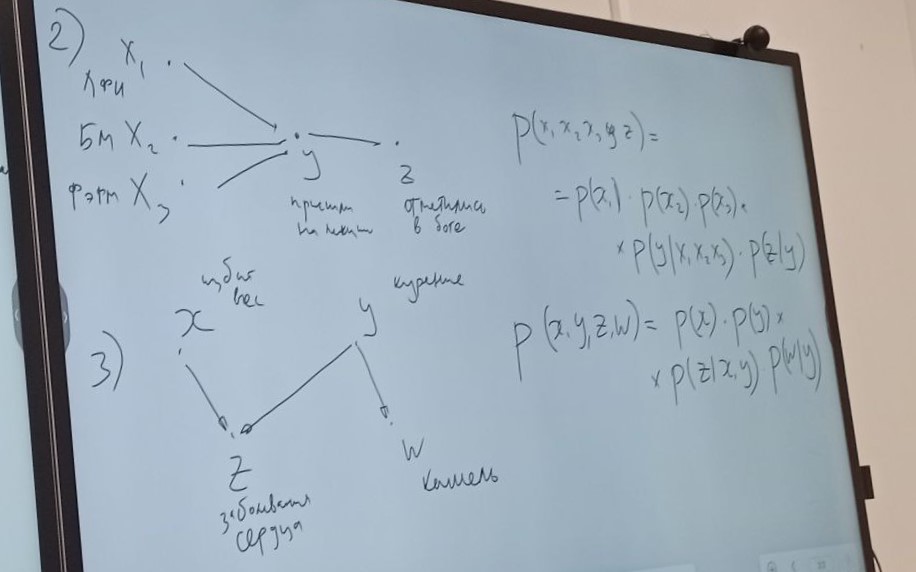 2)
X₁
ЛФИ
БМ X₂
ФЭТМ X₃
y
пришли
на лекцию
z
отметились
в боте
P(x₁ x₂ x₃ y z) =
= p(x₁) · p(x₂) · p(x₃) ·
× p(y|x₁ x₂ x₃) · p(z|y)
3)
избыт
вес
x
y
курение
z
заболевания
сердца
w
кашель
P(x, y, z, w) = p(x) · p(y) ×
× p(z|x, y) p(w|y)